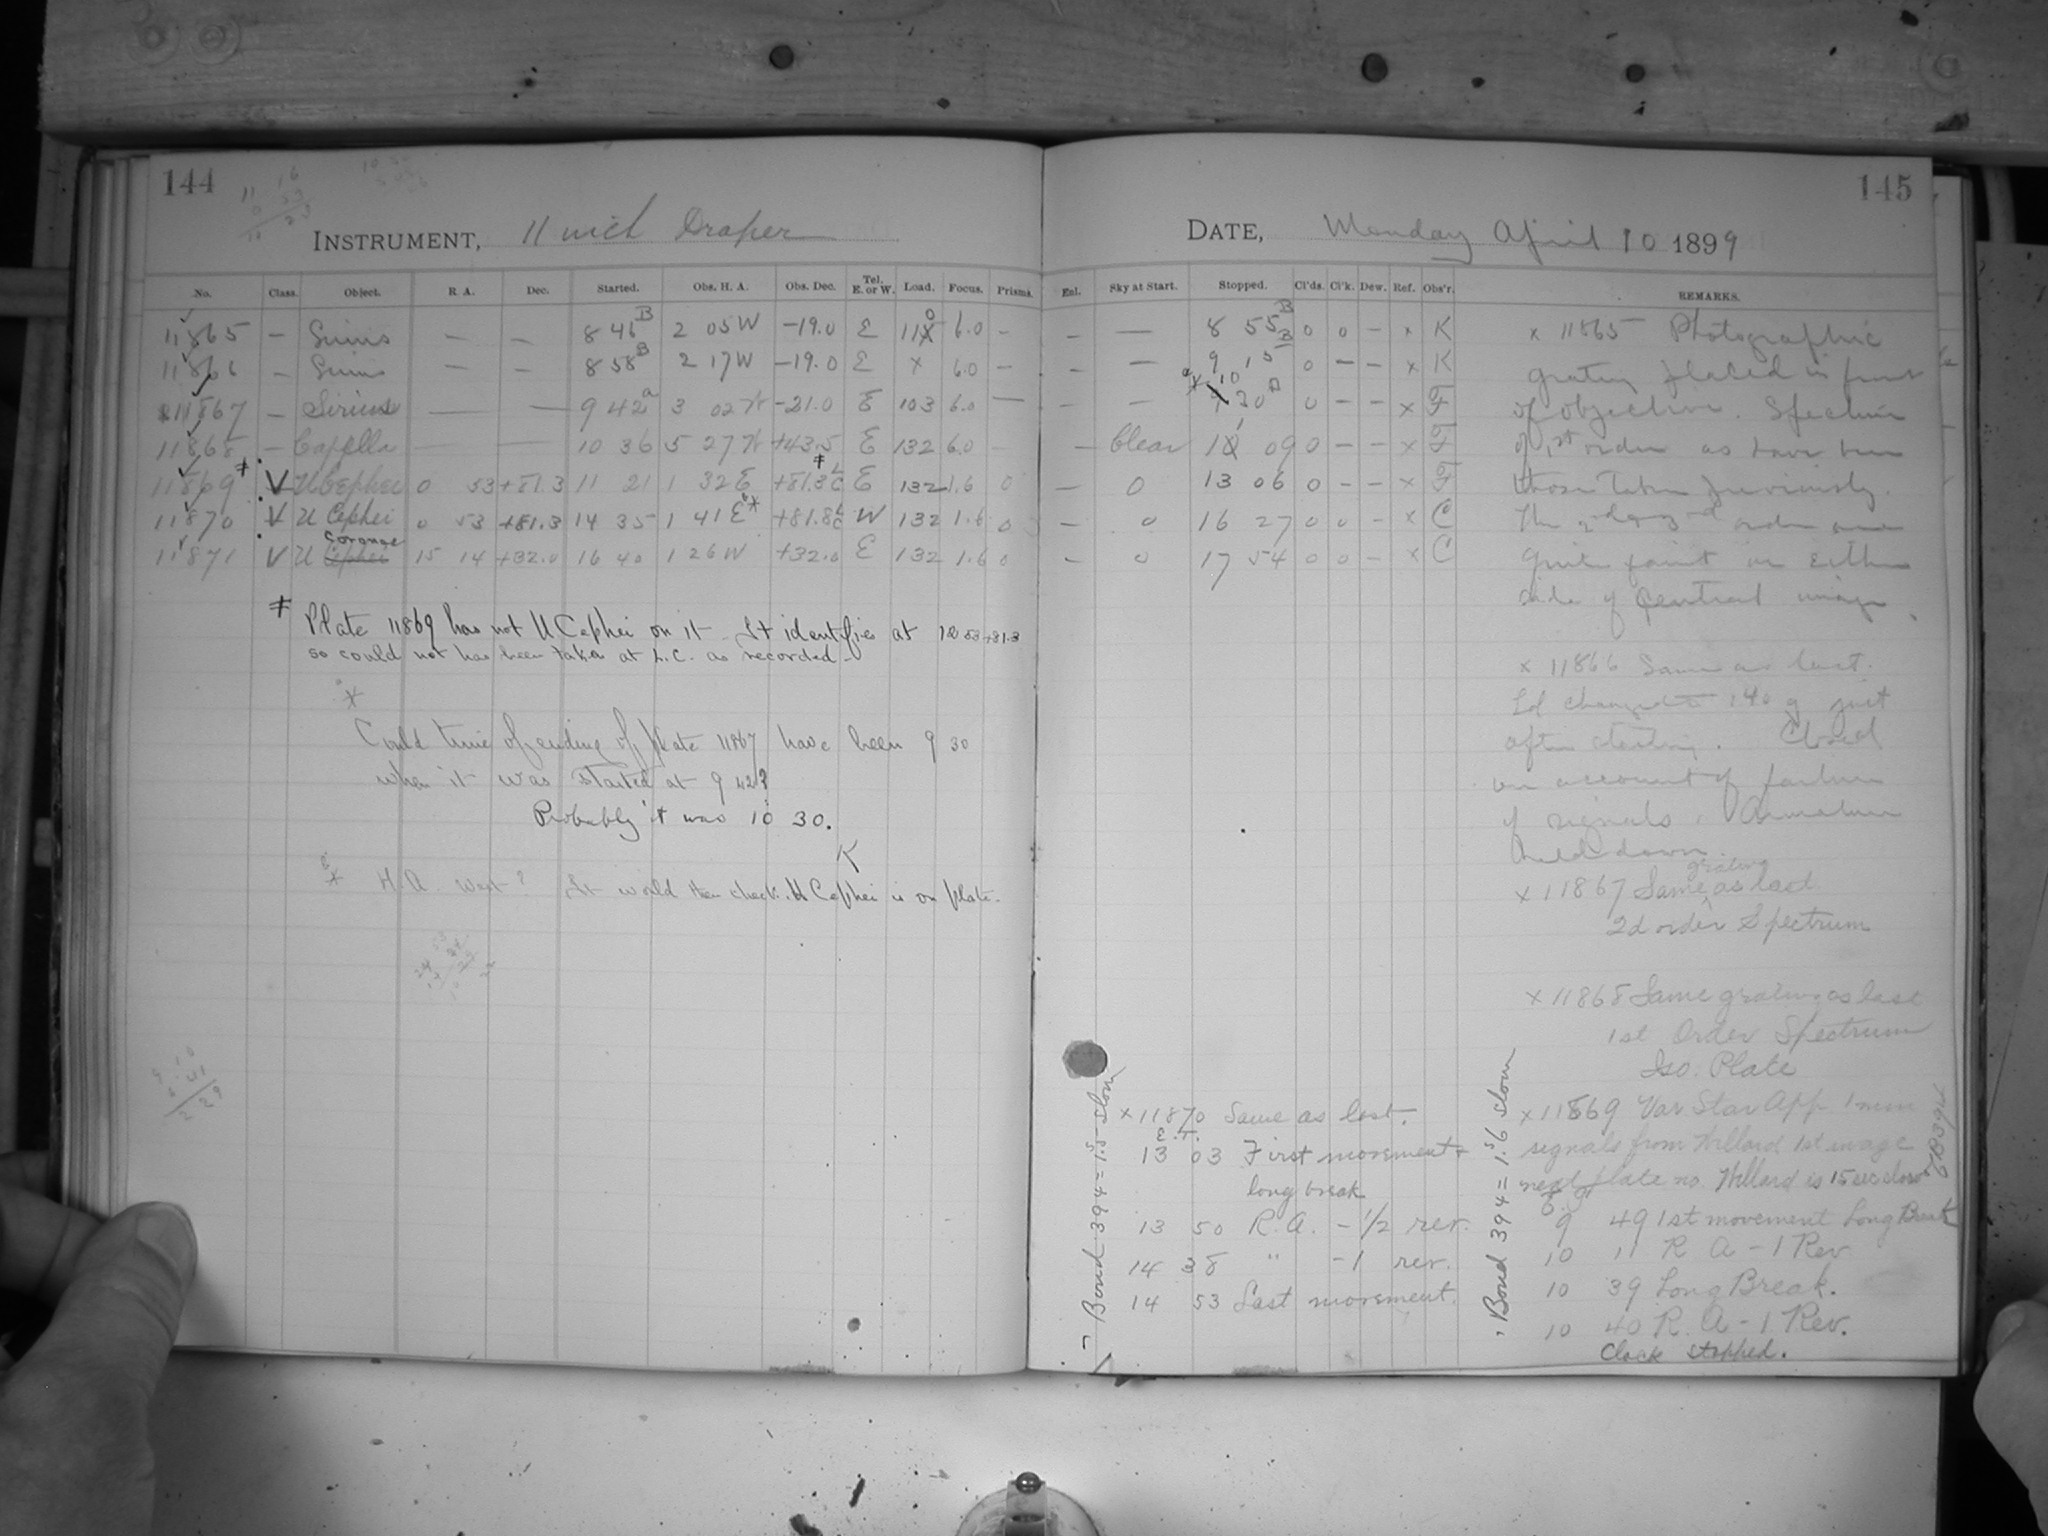 144
INSTRUMENT, 11 inch Draper
No. Class. Object. R. A. Dec. Started. Obs. H. A. Obs. Dec. Tel. E. or W. Load. Focus. Prisms.
11865 – Sirius — — 8 46 B 2 05 W −19.0 E 6.0 –
11866 – Sirius – – 8 58 B 2 17 W −19.0 E x 6.0 –
11867 – Sirius — — 9 42 a 3 02 W −21.0 E 103 6.0 —
11868 – Capella — — 10 36 5 27 W +43.5 E 132 6.0 –
11869 ‡ V U Cephei 0 53 +81.3 11 21 1 32 E +81.3 L C E 132 1.6 0
11870 V U Cephei 0 53 +81.3 14 35 1 41 E * +81.8 L C W 132 1.6 0
11871 V U Cephei Coronae 15 14 +32.0 16 40 1 26 W +32.0 E 132 1.6 0
‡ Plate 11869 has not U Cephei on it. It identifies at 12 53 +81.3
so could not has been taken at L.C. as recorded –
a *
Could time of ending of plate 11867 have been 9 30
when it was started at 9 42?
Probably it was 10 30.
K
* H.A. West? It would then check. U Cephei is on plate.
145
DATE, Monday April 10 1899
Enl. Sky at Start. Stopped. Cl'ds. Cl'k. Dew. Ref. Obs'r. REMARKS.
– — 8 55 B 0 0 – x K
– — 9 15 B 0 – – x K
– — 10 30 a 0 – – x F
– Clear 11 09 0 – – x F
— 0 13 06 0 – – x F
– 0 16 27 0 0 – x C
– 0 17 54 0 0 – x C
x 11865 Photographic
grating placed in front
of objective. Spectrum
of 1st order as have been
those taken previously.
The 2d and 3rd order are
quite faint on either
side of central image.
x 11866 Same as last.
Ld changed to 140 g just
after starting. Closed
on account of failure
of signals. Armature
held down.
x 11867 Same grating as last
2d order Spectrum
x 11868 Same grating as last
1st Order Spectrum
Iso. Plate
x 11869 Var Star App. 1 min
signals from Willard 1st image
next plate no. Willard is 15 sec slow
9 49 1st movement Long Break
10 11 R. A – 1 Rev.
10 39 Long Break.
10 40 R. A – 1 Rev.
Clock stopped.
x 11870 Same as last.
E.T.
13 03 First movement +
long break
13 50 R.A. – 1/2 rev.
14 38 " – 1 rev.
14 53 Last movement.
Bond 394 = 1.5 slow
Bond 394 = 1.56 slow